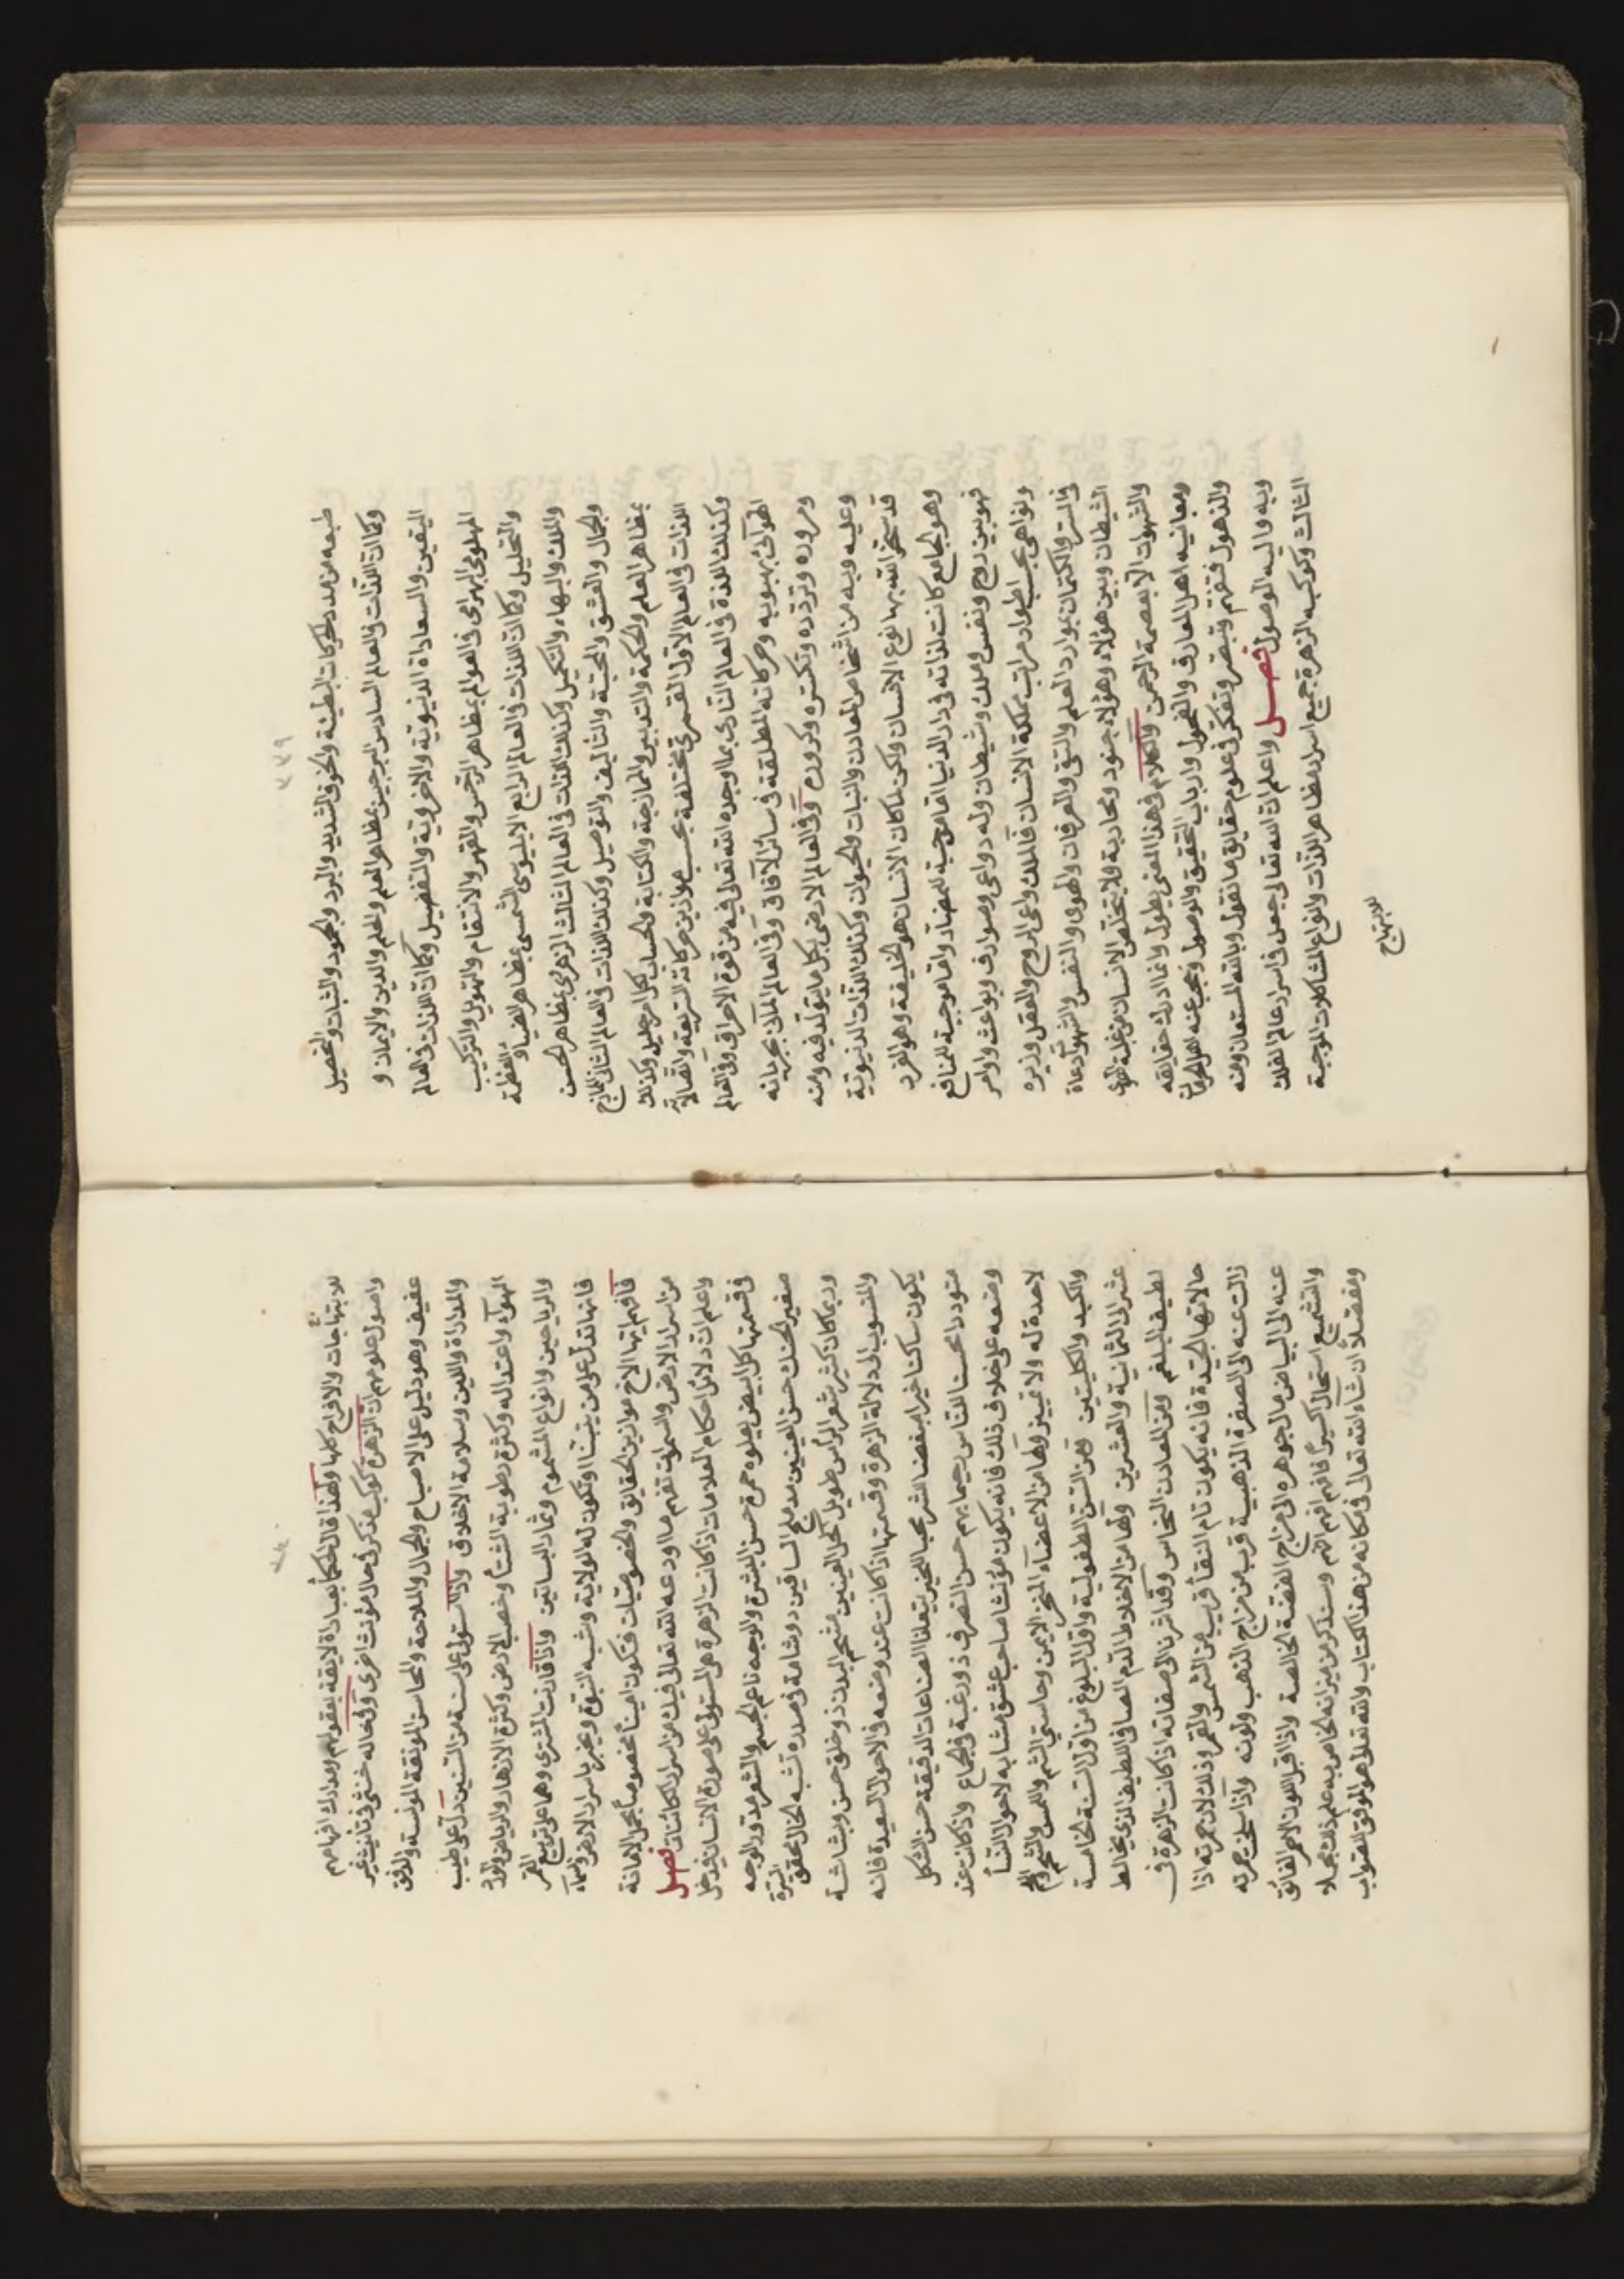 ٣٣٩
طبعه من مدد الحركات البطيئة والخوف الشديد والبرد والجمود والثبات والتحصيل
وكما ان اللذات فى العالم السادس البرجيس بمظاهر العلم والحلم والدين والايمان و
اليقين والسعاداة الدنيوية والاخروية والتفضيل وكما ان اللذات فى العالم
البهرامى فى العوالم بمظاهر الترجس والقهر والانتقام والتهويل والتركيب
والتحليل وكما ان اللذات فى العالم الرابع الشمسى بمظاهر الضياء والعظمة
والملك والبهاء والتكميل وكذلك اللذات فى العالم الثالث الزهرى بمظاهر الحسن
والجمال والعشق والمحبة والتأليف والتوصيل وكذلك اللذات فى العالم الثانى المازج
بمظاهر العلم والحكمة والتدبير والممازجة والكتابة والحساب لكل امر جليل وكذلك
اللذات فى العالم الاول القمرى مختلفة بحسب موازين حركاته السريعة واتصالاته
وكذلك اللذة فى العالم النارى بما اوجده الله تعالى فيه من قوة الاحراق وفى العالم
الهوائى بهبوبه وحركاته المطلقة فى سائر الآفاق وفى العالم المائى بجريانه
ومروره وتردده وتكسره وكروره وفى العالم الارضى بكل ما يتولد فيه ومنه
وعليه وبه من اشخاص المعادن والنبات والحيوان وكذلك اللذات الدنيوية
قد سخر الله بها نوع الانسان ولكن لما كان الانسان هو الخليفة وهو الفرد
وهو الجامع كانت لذاته فى دار الدنيا اما موجبة للمضار واما موجبة للمنافع
فهو بين روح ونفس وملك وشيطان وله دواعى وصوارف وبواعث واوامر
ونواهى بحسب اطوار مراتب مملكة الانسان فالملك داعى الروح والعقل وزيره
فى السر والكتمان بموارد العلم والتقى والعرفان والهوى والنفس والشهوات دعاة
الشيطان وبين هؤلاء وهؤلاء جنود ومحاربة ولا يتخلص الانسان من غلبة الهوى
والشهوات الا بعصمة الرحمن والكلام فى هذا المعنى يطول وانما ادرك حقايقه
ومعانيه اهل المعارف والفحول وارباب التحقيق والوصول وحجب عنه اهل الحرمان
والذهول فتفهم وتبصر وتفكر فى علوم حقايق ما نقول وبالله المستعان ومنه
وبه واليه الوصول فصل واعلم ان الله تعالى جعل فى اسرار عالم الفلك
الثالث وكوكبه الزهرة جميع اسرار مظاهر اللذات وانواع المشاكلات الموجبة
للابتهاج
٣٤٠
للابتهاجات والافراح كلها ولهذا قال الحكماء بعباداة لايقة بعقولهم ومدارك افهامهم
واصول علومهم ان الزهرة كوكب مذكر فى حال مؤنث اخرى وفى حاله خنثى فى تأنيث غير
عفيف وهو دليل على الاصباح والجمال والملاحة والمحاسن المونقة المونسة والرفق
والمداراة واللين وسلامة الاخلاق واذا استولى على سنة من السنين دل على طيب
الهواء واعتداله وكثرة رطوبة الشتاء وخصب الارض وكثرة الازهار والرياض والورد
والرياحين وانواع المشموم وثمار البساتين واذا قارنت المشترى وهما على تربيع القمر
فانها تدل على من يتنبأ او تكون له الولاية وشبه النبوة ويخبر باسرار الارض والسماء
فافهم ايها الاخ موازين الحقايق والخصوصيات فتكون امينا مخصوصا بحمل الامانة
من اسرار الارض والسموات تفهم ما اودعه الله تعالى فيك من اسرار الكائنات فصل
واعلم ان دلائل احكام العلامات اذا كانت الزهرة هى المستولى على صورة الانسان فيدخل
فى قسمتها كل ابيض يعلوه حمرة حسن البشرة والوجه ناعم الجسم والشعر مدور الوجه
صغير الحنك حسن العينين مدملج الساقين ذو شامة فى صدره تشبه الخال محقق السيرة
وربما كان كثير شعر الرأس طويل اكحل العينين مشحم البدن ذو خلق حسن وبشاشة
والمنسوب الى دلالة الزهرة وقسمتها اذا كانت عند وضعه فى الاحوال السعيدة فانه
يكون ساكنا خيرا مبغضا للشر محبا للخير يتعلم الصناعات الدقيقة حسن الشكل
متوددا محسنا للناس رحيما بهم حسن التصرف ذو رغبة فى الجماع واذا كان عند
وضعه على خلاف ذلك فانه يكون مؤنثا صاحب عشق مشابه لاحوال النساء
لا حدة له ولا تمييز ولها من الاعضاء المنخر الايمن وحاستى الشم واللمس والشحم والفم
والكبد والكليتين ومن السن الطفولية واول البلوغ من اول السنة الخامسة
عشر الى الثمانية والعشرين ولها من الاخلاط الدم الصافى اللطيف الذى يخالط
لطيف البلغم ومن المعادن النحاس وقد اشرنا الى صفاته اذا كانت الزهرة فى
حالاتها الجيدة فانه يكون تام النقاء قريب من الشمس والقمر وذلك لان حمرته اذا
زالت عنه الى الصفرة الذهبية قرب من مزاج الذهب ولونه واذا سلخت حمرته
عنه الى البياض مال جوهره الى مزاج الفضة الخالصة واذا قبل اللون الاحمر الفائق
والتشميع استحال اكسيرا فافهم افهم الله وسنذكر من ميزانه الخاص به علم ذلك مجملا
ومفصلا ان شاء الله تعالى فى مكانه من هذا الكتاب والله تعالى هو الموفق للصواب